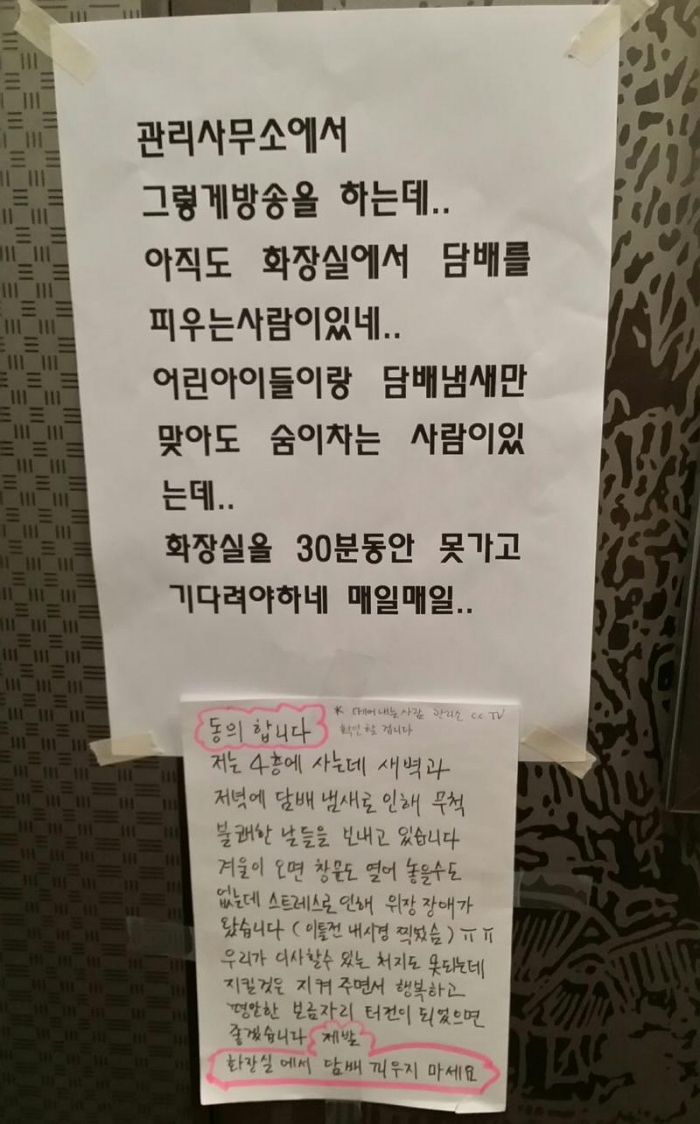 관리사무소에서
그렇게방송을 하는데..
아직도 화장실에서 담배를
피우는사람이있네..
어린아이들이랑 담배냄새만
맞아도 숨이차는 사람이있
는데..
화장실을 30분동안 못가고
기다려야하네 매일매일..
동의 합니다
* 떼어내는사람 관리소 CCTV
확인할 겁니다
저는 4층에 사는데 새벽과
저녁에 담배 냄새로 인해 무척
불쾌한 날들을 보내고 있습니다
겨울이 오면 창문도 열어 놓을수도
없는데 스트레스로 인해 위장 장애가
왔습니다 (이틀전 내시경 찍었슴) ㅠㅠ
우리가 이사할수 있는 처지도 못되는데
지킬것은 지켜 주면서 행복하고
평안한 보금자리 터전이 되었으면
좋겠습니다 제발
화장실에서 담배 피우지 마세요